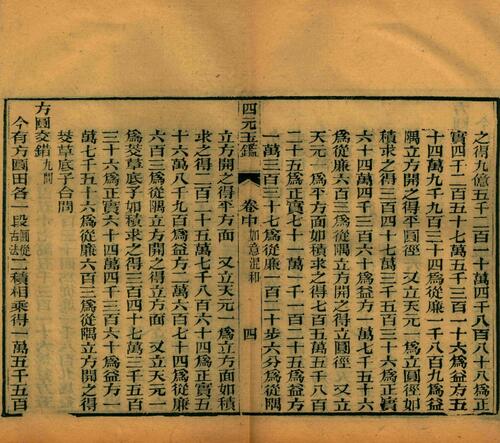 之得九億五千二百一十萬四千八百八十八爲正
實四千二百五十七萬五千三百一十六爲益方一
十四萬九千九百三十七爲從廉一千八百九爲益
隅立方開之得平圓徑 又立天元一爲立圓徑如
積求之得三百四十七萬三千五百三十六爲正實
六十四萬四千三百六十爲益方一萬七千五十六
爲從廉六百三爲從隅立方開之得立圓徑 又立
天元一爲平方面如積求之得五百五萬五千八百
二十五爲正實七十一萬一千一百二十五爲益方
一萬三百三十七爲從廉一百二十步六分爲從隅
四元玉鑑 卷中 如意混和 四
立方開之得平方面 又立天元一爲立方面如積
求之得二百二十五萬七千八百六十四爲正實五
十六萬八千九百爲益方一萬六百七十四爲從廉
六百三爲從隅立方開之得立方面 又立天元一
爲茭草底子如積求之得三百四十七萬三千五百
三十六爲正實六十四萬四千三百六十爲益方一
萬七千五十六爲從廉六百三爲從隅立方開之得
茭草底子合問
方圓交錯 九問
今有方圓田各一段圓從古法二積相乘得一萬五千五百